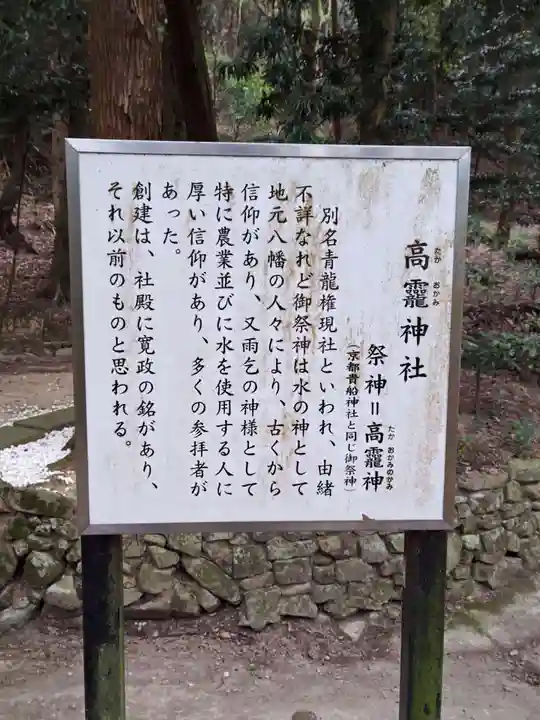 高龗神社
たか おかみ
祭神＝高龗神
たか おかみのかみ
（京都貴船神社と同じ御祭神）
別名青龍権現社といわれ、由緒
不詳なれど御祭神は水の神として
地元八幡の人々により、古くから
信仰があり、又雨乞の神様として
特に農業並びに水を使用する人に
厚い信仰があり、多くの参拝者が
あった。
創建は、社殿に寛政の銘があり、
それ以前のものと思われる。